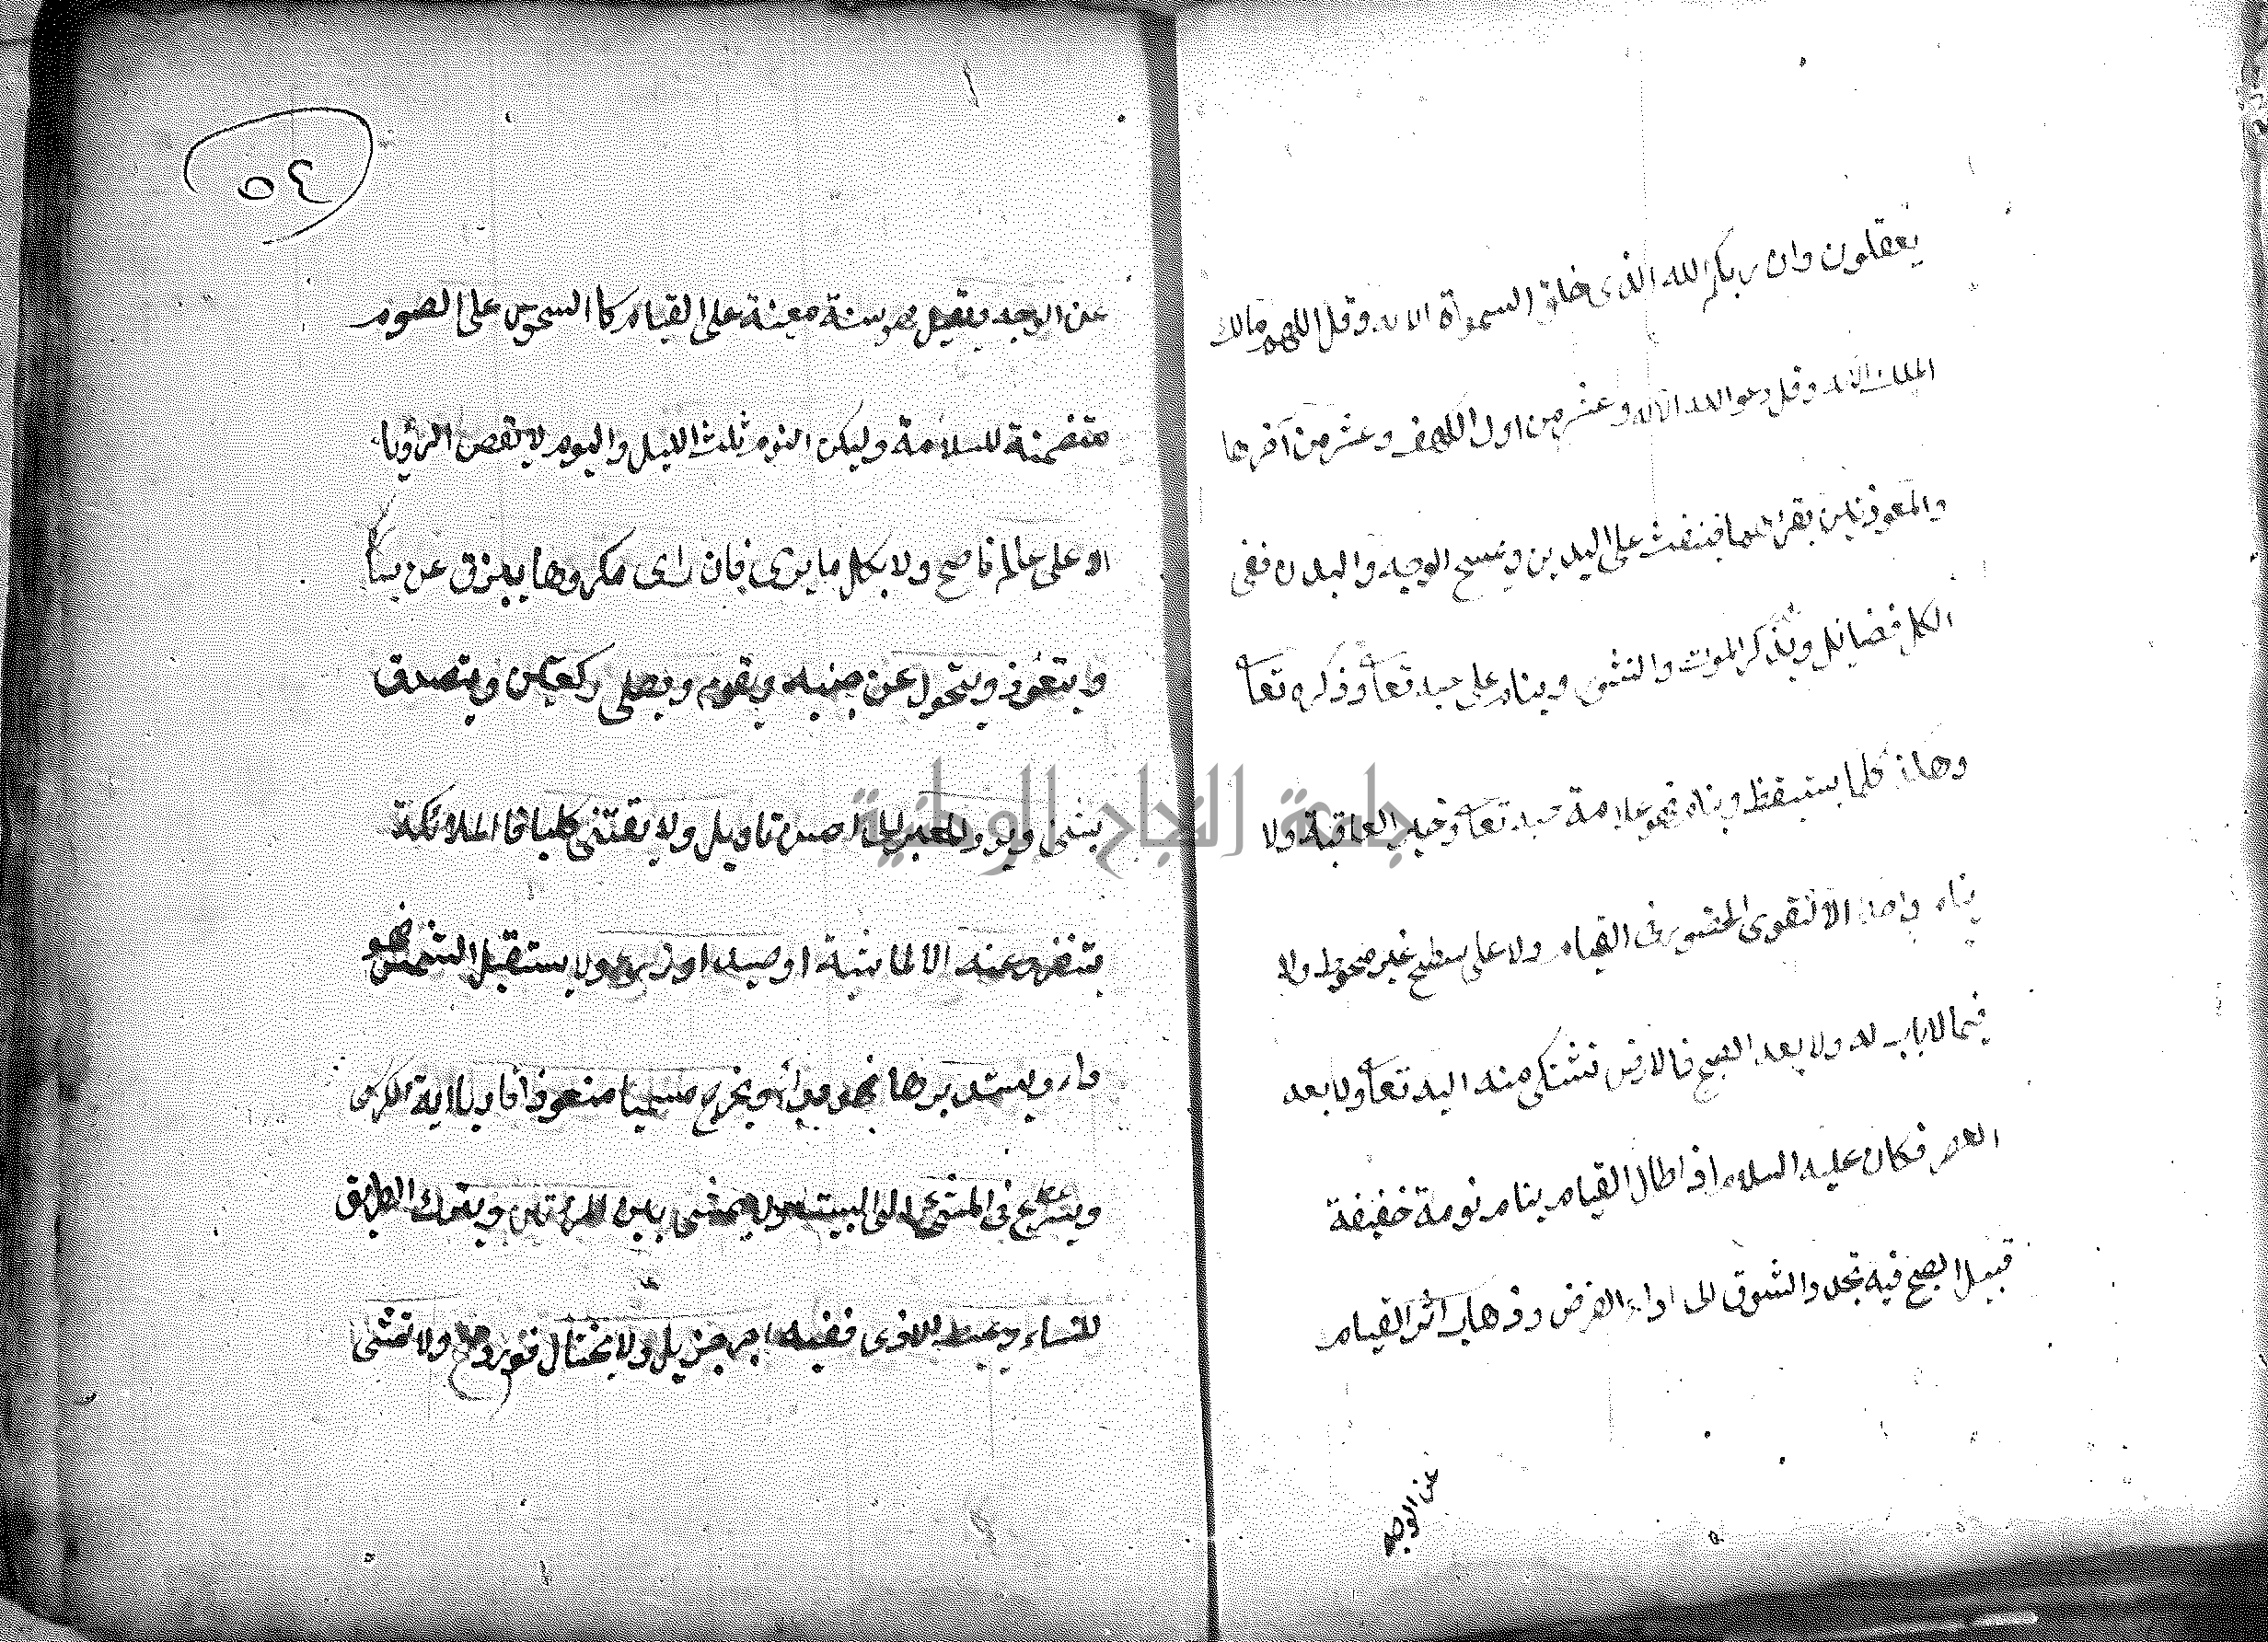 يعقلون وان ربكم الله الذى خلق السموات الايه وقل اللهم مالك
الملك الايه وقل ادعوا الله الايه وعشر من اول الكهف وعشر من آخرها
والمعوذتين يقرئهما فينفث على اليدين ويمسح الوجه والبدن ففى
الكل فضائل ويذكر الموت والنشر وينام على حبه تعا وذكره تعا
وهكذا كلما يستيقظ وينام فهو علامة حبه تعا وخير العاقبة ولا
ينام واحد الا لقوى الحضور فى القيام ولا على سطح غير محوط ولا
فيما لا باب له ولا بعد الصبح فالارض تشتكى منه اليه تعا ولا بعد
العصر فكان عليه السلام اذ اطال القيام ينام نومة خفيفة
قبيل الصبح فيه تجدد الشوق الى اداء الفرض وذهاب اثر القيام
عن الوجه
٥٤
عن الوجه ويقيل فهو سنة معينة على القيام كالسحور على الصوم
متضمنة للسلامة وليكن النوم ثلث الليل واليوم لا يقص الرؤيا
الا على عالم ناصح ولا بكل ما يرى فان راى مكروها يبزق عن يسا
وايتعوذ ويتحول عن جنبه ويقوم ويصلى ركعتين ويتصدق
بشئ ويؤول المعبر احسن تاويل ولا يقتنى كلبا فالملائكة
يتنفر عنه الا لماشية او صيد او زرع ولا يستقبل الشمس فهو
داء ويستدبرها فهو دواء ويخرج مسميا متعوذا قاريا اية الكرسى
ويسرع فى المشى الى البيت ولا يمشى بين المرءتين ويترك الطريق
للنساء ويميط الاذى ففيه اجر جزيل ولا يختال فى ولا تمشى
جامعة النجاح الوطنية